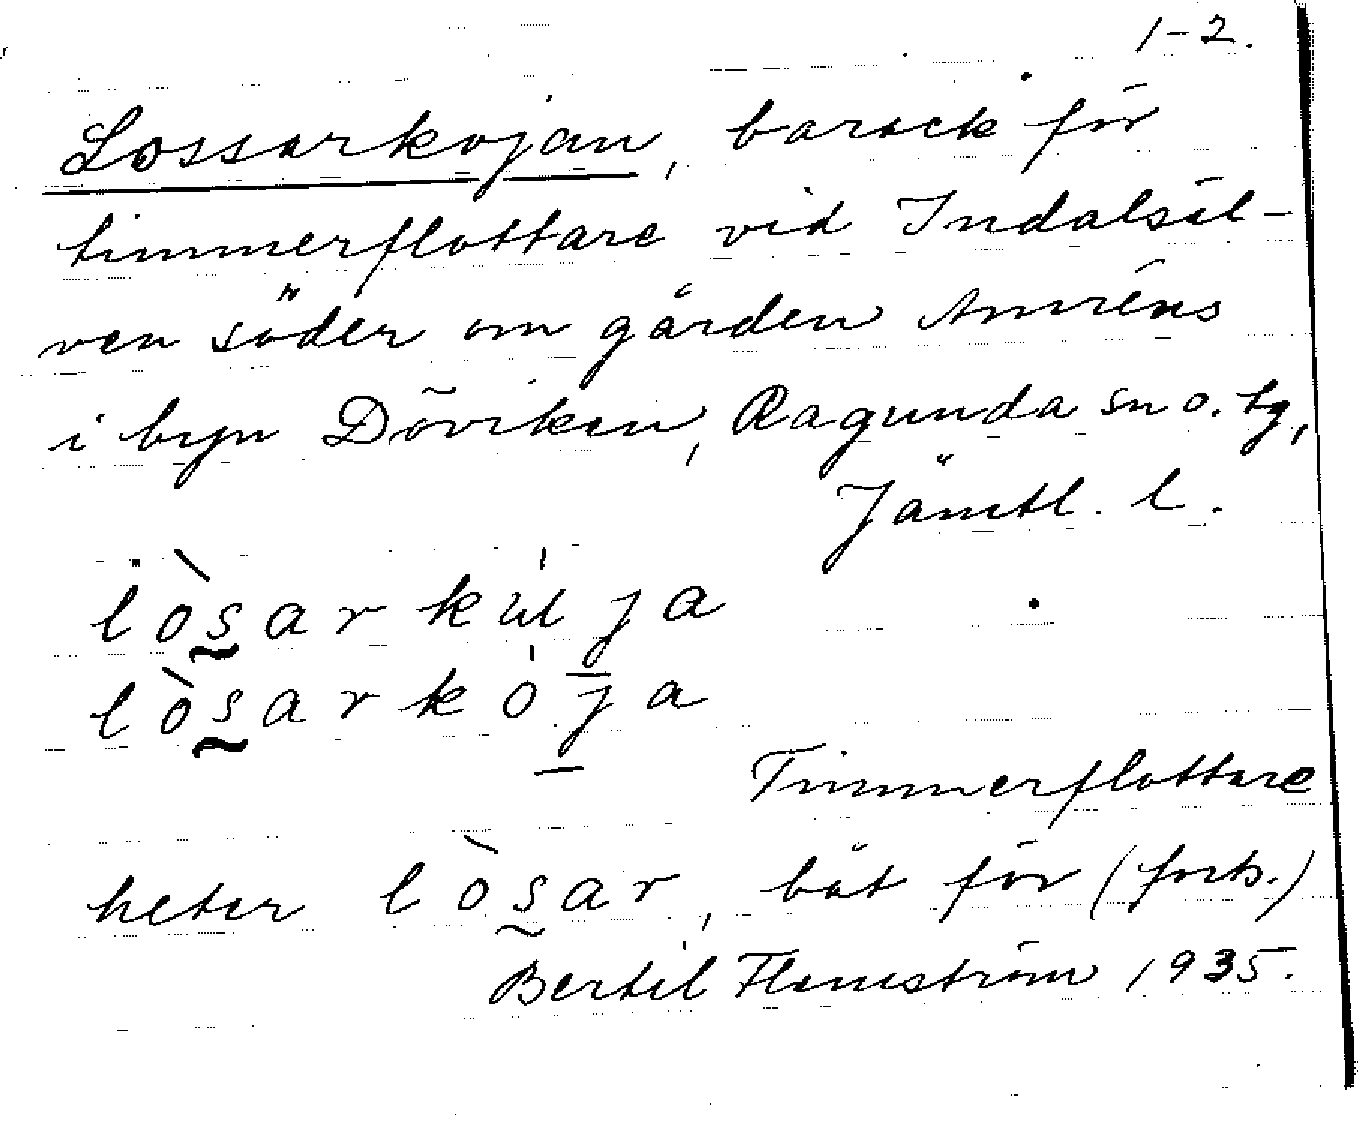 1-2.
Lossarkojan, barack för
timmerflottare vid Indalsäl-
ven söder om gården Amréns
i byn Döviken, Ragunda sn o. tg,
Jämtl. l.
lòsarkúja
lòsarkója
Timmerflottare
heter lòsar, båt för (forts.)
Bertil Flemström 1935.